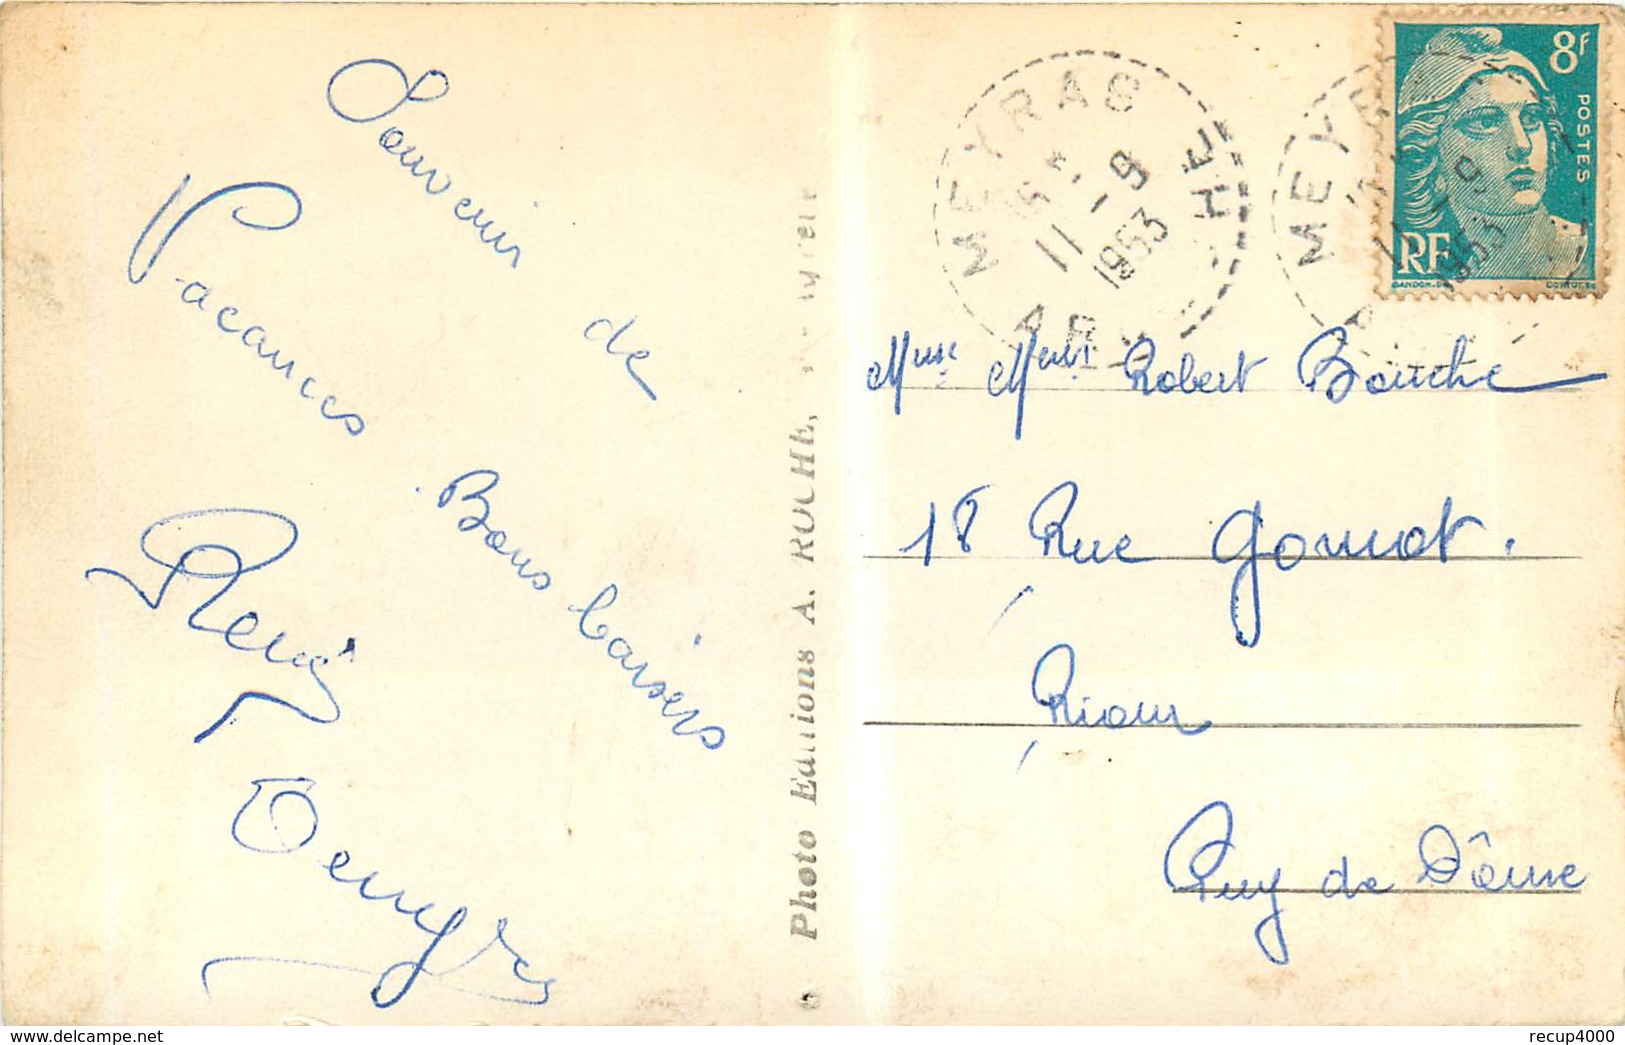 Souvenir de
Vacances Bons baisers
René
Denyse
Photo Editions A. ROCHE,
MEYRAS
11 - 9
1953
ARDÈCHE
MEYR
11 - 9
1953
8F
POSTES
RF
GANDON
Robert Bouche
18 Rue Gomot.
Riom
Puy de Dôme
www.delcampe.net
recup4000